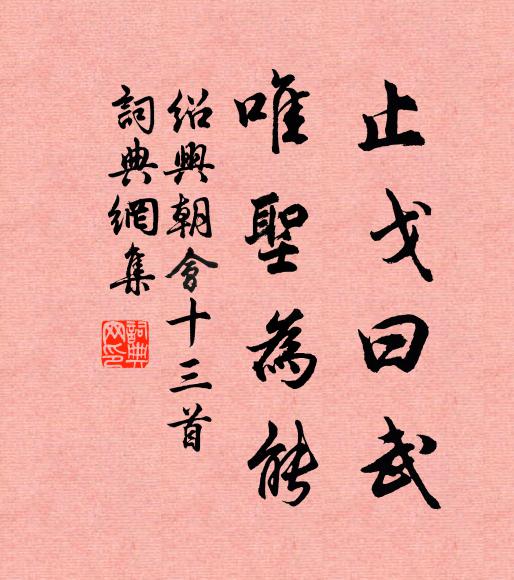 止戈曰武
唯聖為能
紹興朝會十三首
詞典網集
詞典网印